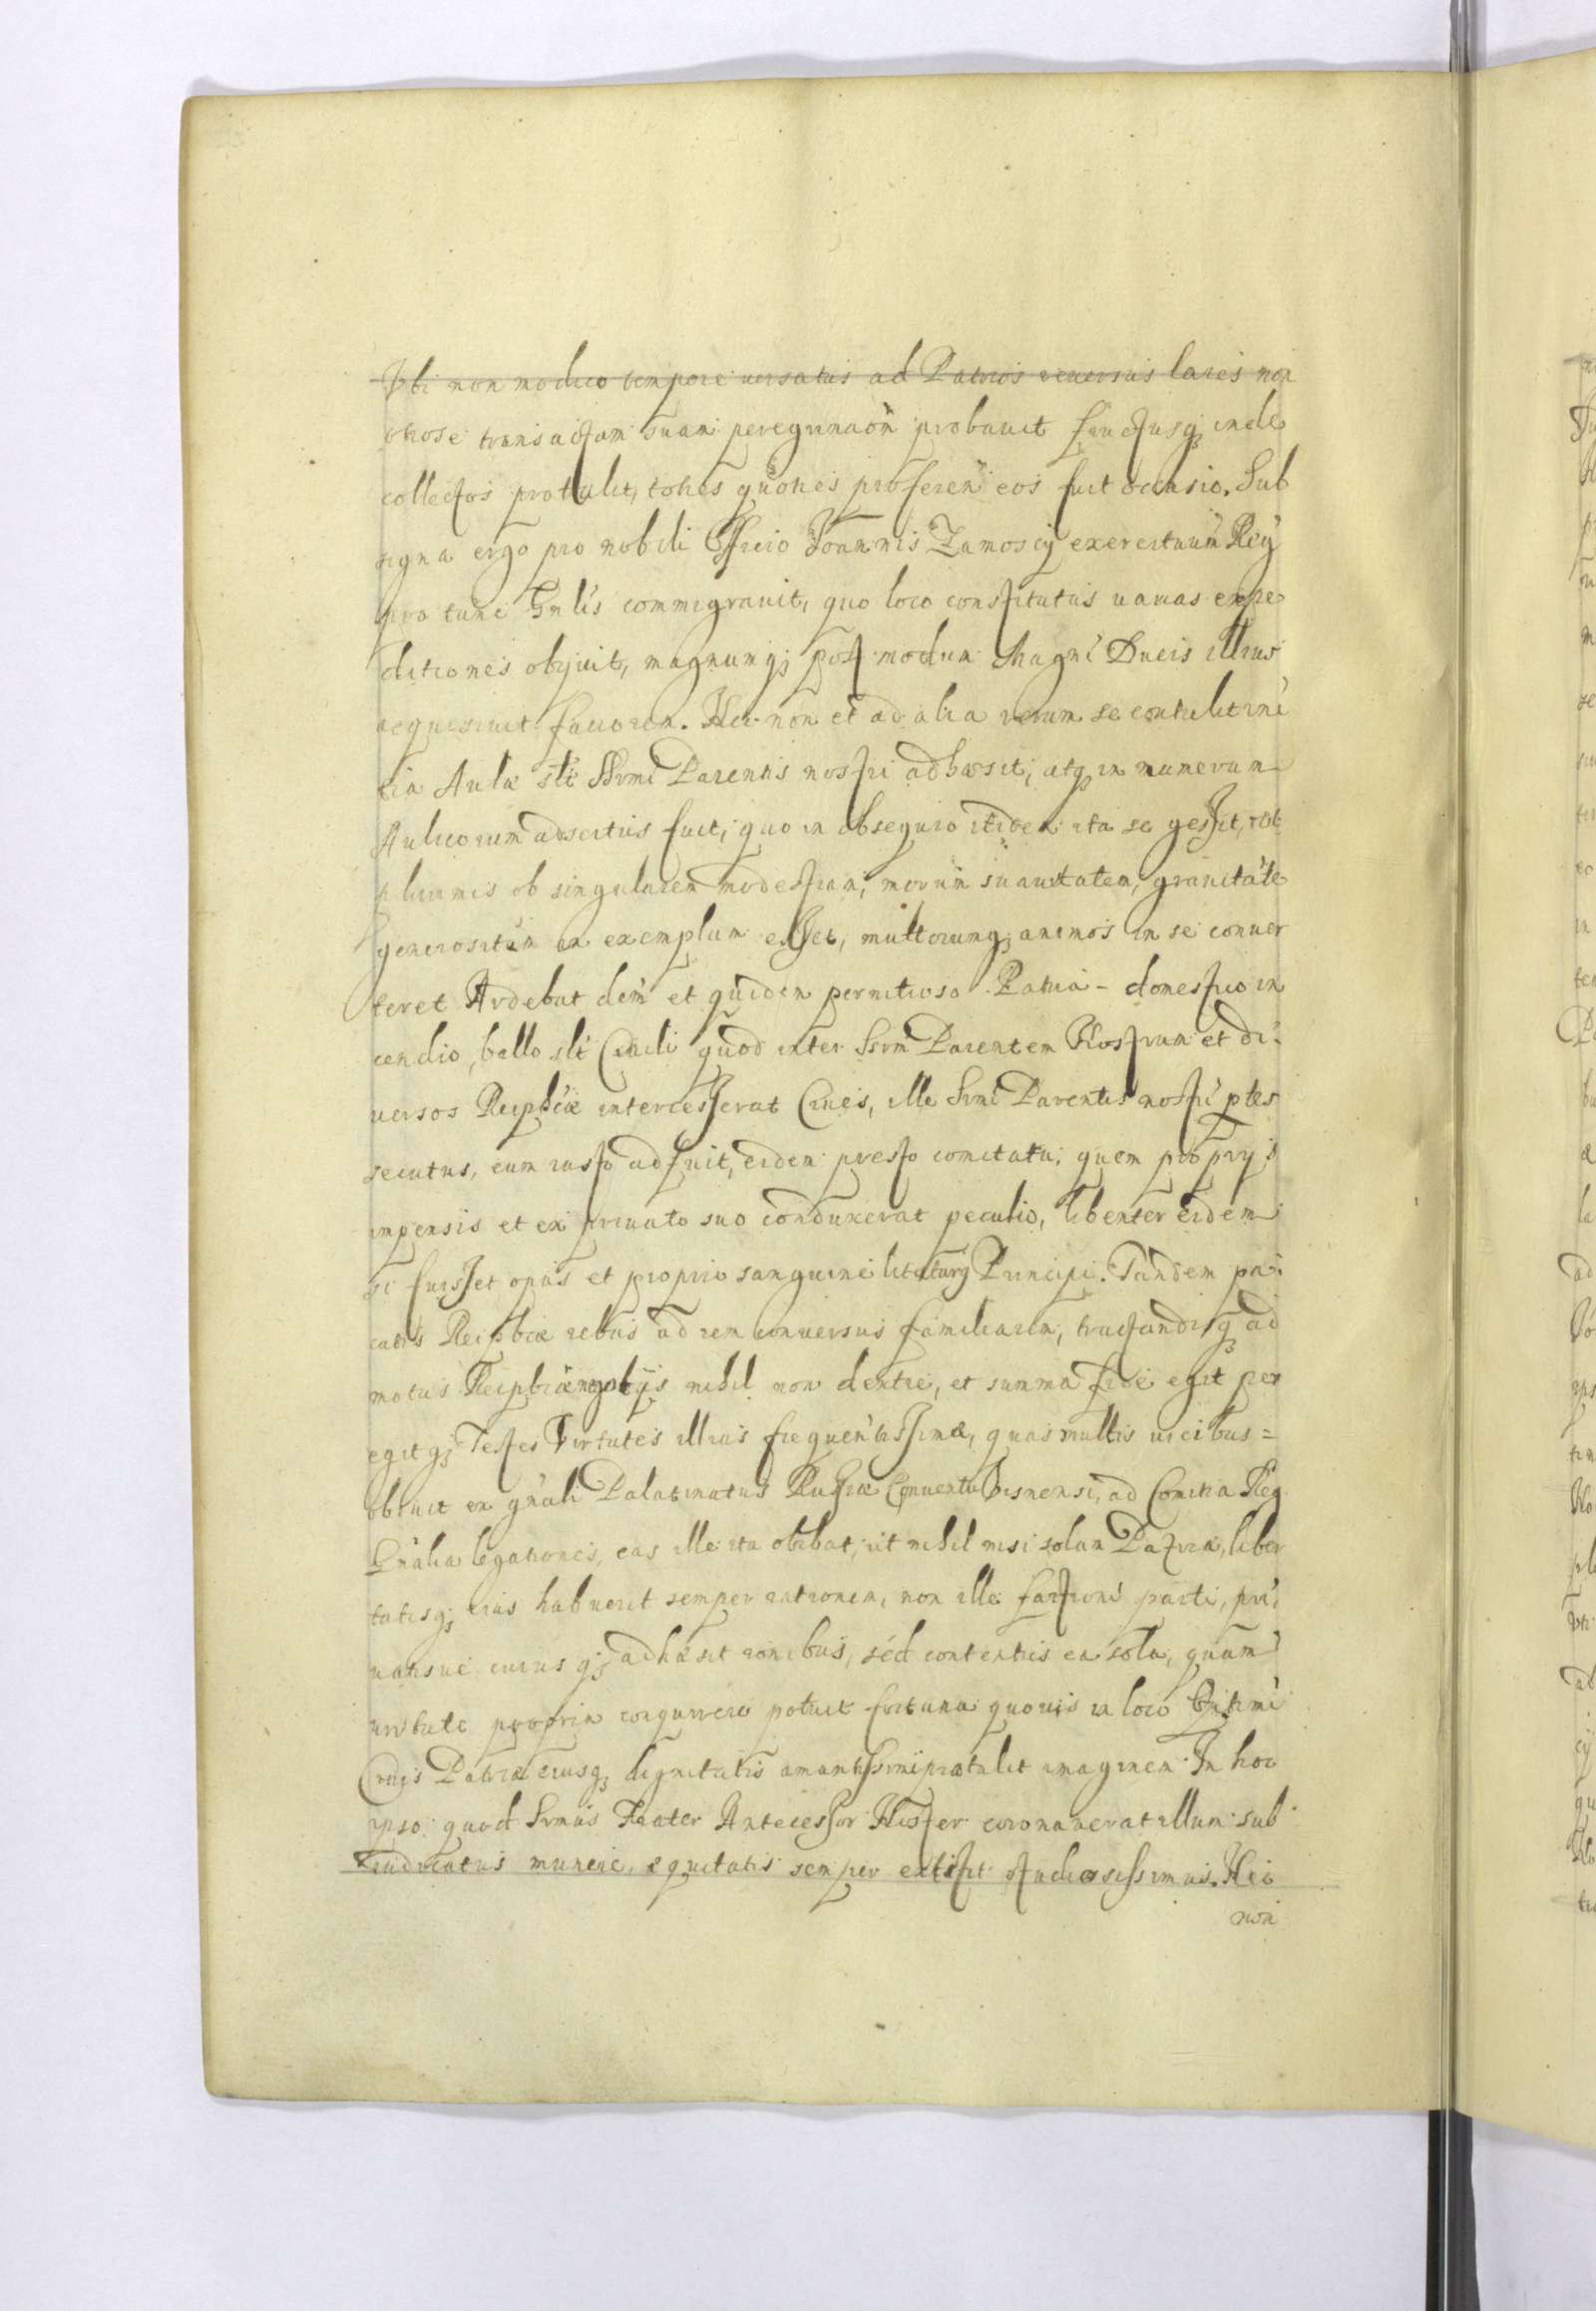 Vbi non modico tempore uersatus ad Patrios reuersus lares non
otiose transactam suam peregrinaõn probauit fructusq3 inde
collectos protulit, toties quoties proferen eos fuit occasio. Sub
signa ergo pro nobili Officio Joannis Zamoscij exercituum Regij
pro tunc Gnlis commigrauit, quo loco constitutus uarias expe
ditiones obijuit, magnumq3 post modum Magni Ducis illius
acquisiuit fauorem. Nec non et ad alia uerum se contulit ini
tia Aulæ slt Srmi Parentis nostri adhæsit, atq3 in numerum
Aulicorum adscitus fuit, quo in obsequio itidem ita se gessit, ut
plurimis ob singularem modestiam, morum suauitatem, grauitate
generositem in exemplum esset, multorumq3 animos in se conuer
teret Ardebat dem et quidem pernitioso Patria - domestico in
cendio, bello slt Ciuili quod inter Srm Parentem Nostrum et di
uersos Reipblicæ intercesserat Ciues, ille Srmi Parentis nostri ptes
secutus, cum iusto adfuit, eidem presto comitatu, quem proprijs
impensis et ex priuato suo conduxerat peculio, libenter eidem
si fuisset opus et proprio sanguine litaturq Principi. Tandem pa
catis Reipbcæ rebus ad rem conuersus familiarem, tractandisq3 ad
motus Reipbcæ ngotijs nihil non dextre, et summa fide egit per
egitq3 Testes Virtutes illius frequentissimæ, quas multis uicibus =
obiuit ex gnali Palatinatus Russiæ Conuentu Visnensi, ad Comitia Reg
Gnalia legationes, eas ille ita obibat, ut nihil nisi solam Patriæ, liber
tatisq3 eius habuerit semper rationem, non ille factioni parti, pri
uatisue cuiusq3 adhæsit ronibus, sed contentus ea sola, quam
uirtute propria conquirere potuit fortuna quouis in loco Optimi
Ciuis Patriæ eiusq3 dignitatis amantissimi prætulit imaginem. In hoc
ipso quod Srmus Frater Antecessor Noster coronauerat illum sub
iudicatus munere, æquitatis semper extitit studiosissimus. Nec
non